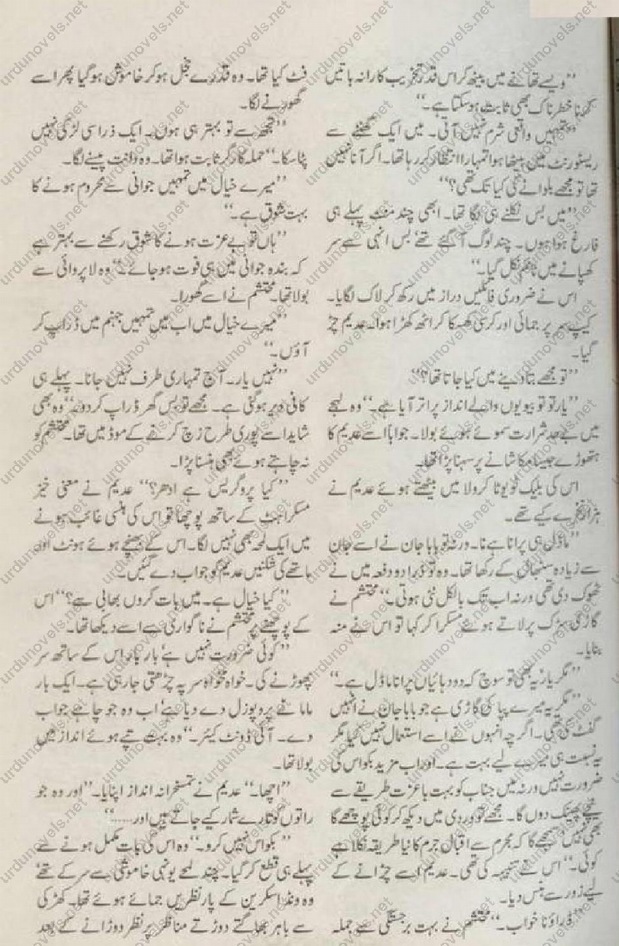 ’’ویسے تھانے میں بیٹھ کر اس قدر تخریب کارانہ باتیں
کرنا خطرناک بھی ثابت ہوسکتا ہے۔‘‘
’’تمہیں واقعی شرم نہیں آتی۔ میں ایک گھنٹے سے
ریسٹورنٹ میں بیٹھا ہوا تمہارا انتظار کر رہا تھا۔ اگر آنا نہیں
تھا تو مجھے بلوانے کی کیا تک تھی؟‘‘
’’میں بس نکلنے ہی لگا تھا۔ ابھی چند منٹ پہلے ہی
فارغ ہوا ہوں۔ چند لوگ آگئے تھے بس انہی سے سر
کھپانے میں ٹائم نکل گیا۔‘‘
اس نے ضروری فائلیں دراز میں رکھ کر لاک لگایا۔
کیپ سر پر جمائی اور کرسی کھسکا کر اٹھ کھڑا ہوا۔ عدیم چڑ
گیا۔
’’تو مجھے بتا دینے میں کیا جاتا تھا؟‘‘
’’یار تو تو بیویوں والے انداز پر اتر آیا ہے۔‘‘ وہ لہجے
میں بے حد شرارت سموئے ہوئے بولا۔ جواباً اسے عدیم کا
ہتھوڑے جیسا مکا شانے پر سہنا پڑا تھا۔
اس کی بلیک ٹویوٹا کرولا میں بیٹھتے ہوئے عدیم نے
ہزار نخرے کیے تھے۔
’’ماڈل ہی پرانا ہے نا۔ ورنہ تو بابا جان نے اسے جان
سے زیادہ سنبھال کے رکھا تھا۔ وہ تو ذرا دو دفعہ میں نے
ٹھوک دی تھی ورنہ اب تک بالکل نئی ہوتی۔‘‘ محتشم نے
گاڑی سڑک پر لاتے ہوئے مسکرا کر کہا تو اس نے منہ
بنایا۔
’’مگر یار یہ بھی تو سوچ کہ دو دہائیاں پرانا ماڈل ہے۔‘‘
’’مگر یہ میرے پپا کی گاڑی ہے جو بابا جان نے انہیں
گفٹ کی تھی۔ اگرچہ انہوں نے اسے استعمال نہیں کیا مگر
یہ نسبت ہی میرے لیے بہت ہے۔ اور اب مزید بکواس کی
ضرورت نہیں ورنہ میں جناب کو بہت باعزت طریقے سے
نیچے پھینک دوں گا۔ مجھے تو وردی میں دیکھ کر کوئی پوچھے گا
بھی نہیں سمجھے گا کہ مجرم سے اقبال جرم کا نیا طریقہ نکالا ہے
کوئی۔‘‘ اس نے تنبیہہ کی تھی۔ عدیم اسے چڑانے کے
لیے زور سے ہنس دیا۔
’’ڈراؤنا خواب۔‘‘ محتشم نے بہت برجستگی سے جملہ
فٹ کیا تھا۔ وہ قدرے خجل ہو کر خاموش ہوگیا پھر اسے
گھورنے لگا۔
’’تجھ سے تو بہتر ہی ہوں۔ ایک ذرا سی لڑکی نہیں
پٹا سکا۔‘‘ حملہ کارگر ثابت ہوا تھا۔ وہ دانت پیسنے لگا۔
’’میرے خیال میں تمہیں جوانی سے محروم ہونے کا
بہت شوق ہے۔‘‘
’’ہاں تو بے عزت ہونے کا شوق رکھنے سے بہتر ہے
کہ بندہ جوانی میں ہی فوت ہوجائے۔‘‘ وہ لاپروائی سے
بولا تھا۔ محتشم نے اسے گھورا۔
’’میرے خیال میں اب میں تمہیں جہنم میں ڈراپ کر
آؤں۔‘‘
’’نہیں یار۔ آج تمہاری طرف نہیں جانا۔ پہلے ہی
کافی دیر ہوگئی ہے۔ مجھے تو بس گھر ڈراپ کر دو۔‘‘ وہ بھی
شاید اسے پوری طرح زچ کرنے کے موڈ میں تھا۔ محتشم کو
نہ چاہتے ہوئے بھی ہنسنا پڑا۔
’’کیا پروگریس ہے ادھر؟‘‘ عدیم نے معنی خیز
مسکراہٹ کے ساتھ پوچھا تو اس کی ہنسی غائب ہونے
میں ایک لمحہ بھی نہیں لگا۔ اس کے بھنچے ہوئے ہونٹ اور
ماتھے کی شکنیں عدیم کو جواب دے گئیں۔
’’کیا خیال ہے۔ میں بات کروں بھابی سے؟‘‘ اس
کے پوچھنے پر محتشم نے ناگواری سے اسے دیکھا تھا۔
’’کوئی ضرورت نہیں ہے بار بار اس کے ساتھ سر
پھوڑنے کی۔ خوامخواہ سر پہ چڑھتی جا رہی ہے۔ ایک بار
ماما نے پرپوزل دے دیا ہے اب وہ جو چاہے جواب
دے۔ آئی ڈونٹ کیئر۔‘‘ وہ بہت تپے ہوئے انداز میں
بولا تھا۔
’’اچھا۔‘‘ عدیم نے تمسخرانہ انداز اپنایا۔ ’’اور وہ جو
راتوں کو تارے شمار کیے جاتے ہیں اور......‘‘
’’بکواس نہیں کرو۔‘‘ وہ اس کی بات مکمل ہونے سے
پہلے ہی قطع کر گیا۔ چند لمحے یونہی خاموشی سے سرکے تھے
وہ ونڈ اسکرین کے پار نظریں جمائے ہوئے تھا۔ کھڑکی
سے باہر بھاگتے دوڑتے مناظر پر نظر دوڑانے کے بعد
urdunovels.net